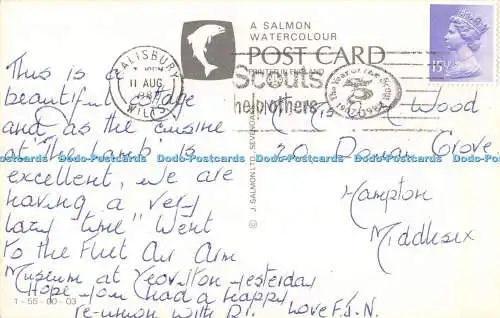 A SALMON
WATERCOLOUR
POST CARD
PRINTED IN ENGLAND
SALISBURY
11 AUG
WILTS
Scouts
help others
The Year of the Scout
15½P
This is a
beautiful cottage
and as the cuisine
at "The Lamb" is
excellent, we are
having a very
lazy time" Went
to the Fleet Air Arm
Museum at Yeovilton yesterday
Hope you had a happy
re-union with
Love F.J.N.
Wood
20 Grove
Hampton
Middlesex
© J. SALMON LTD., SEVENOAKS
1-55-00-03
Dodo-Postcards Dodo-Postcards Dodo-Postcards Dodo-Postcards